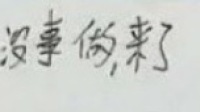 没事做,来了